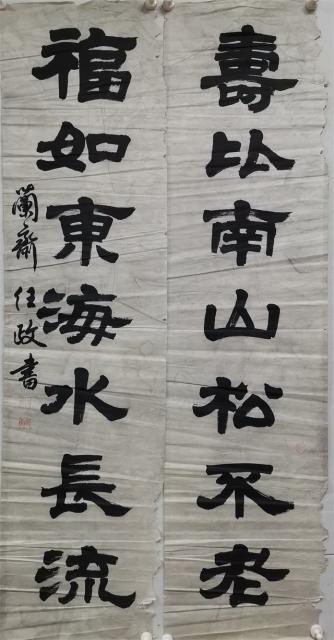 壽比南山松不老
福如東海水長流
蘭齋任政書